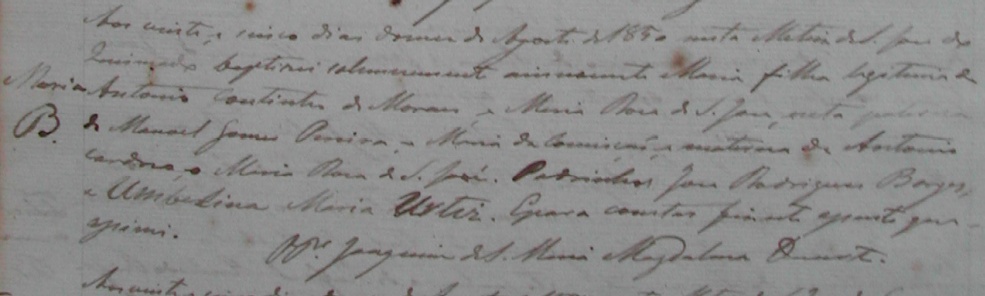 Aos vinte, e sinco dias do mes de Agosto de 1850 nesta Matriz de S. Jose do
Queimado baptizei solemnemente a innocente Maria filha legitima de
Maria Antonio de Moraes, e Maria Rosa de S. Jose, neta paterna
B. de Manoel Gomes Pereira, e Maria da Conceição, e materna de Antonio
Cardoso, e Maria Rosa de S. José. Padrinhos Jose Rodrigues Borges,
e Umbelina Maria Ortiz. E para constar fiz este assento que
assinei.
Joaquim de S. Maria Magdalena Duarte.